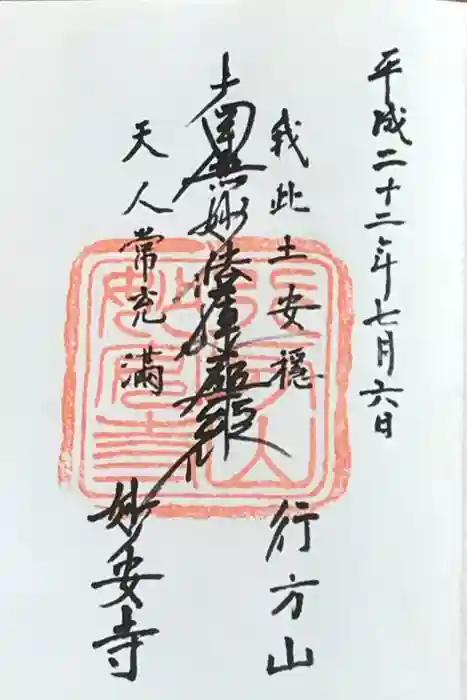 平成二十二年七月六日
我此土安穏 行方山
南無妙法蓮華経
天人常充満 妙安寺